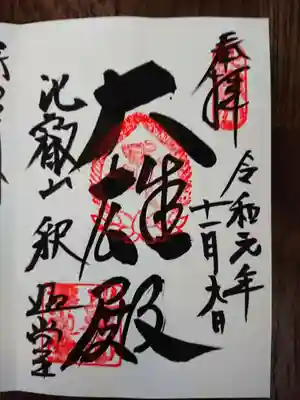 奉拝
令和元年
十一月九日
大雄殿
比叡山 釈迦堂